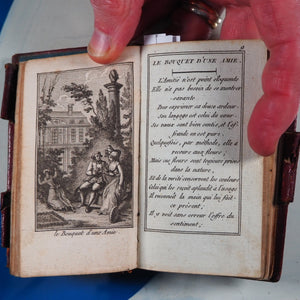 le Bouquet d'une Amie
LE BOUQUET D'UNE AMIE.
L'Amitié n'est point éloquente
Elle n'a pas besoin de se montrer
savante
Pour exprimer sa douce ardeur
Son langage est celui du cœur.
Ses vœux sont bien sentis, et l'of-
frande en est pure;
Quelquefois, par méthode, elle a
recours aux fleurs;
Mais ces fleurs sont toujours prises
dans la nature,
Et de la vérité conservent les couleurs
Celui qui les reçoit applaudit à l'usage
Il reconnoît la main qui lui fait
ce présent;
Il y voit sans erreur l'offre du
sentiment;